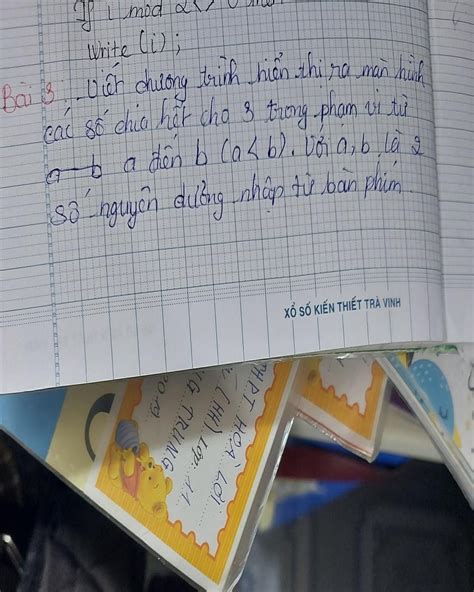 If i mod 2<>0 then
Write (i);
Bài 3: Viết chương trình hiển thị ra màn hình
các số chia hết cho 3 trong phạm vi từ
a đến b (a<b). Với a, b là 2
số nguyên dương nhập từ bàn phím
XỔ SỐ KIẾN THIẾT TRÀ VINH
THPT HOÀ LỢI
(HK) Lớp: 11
TRUNG